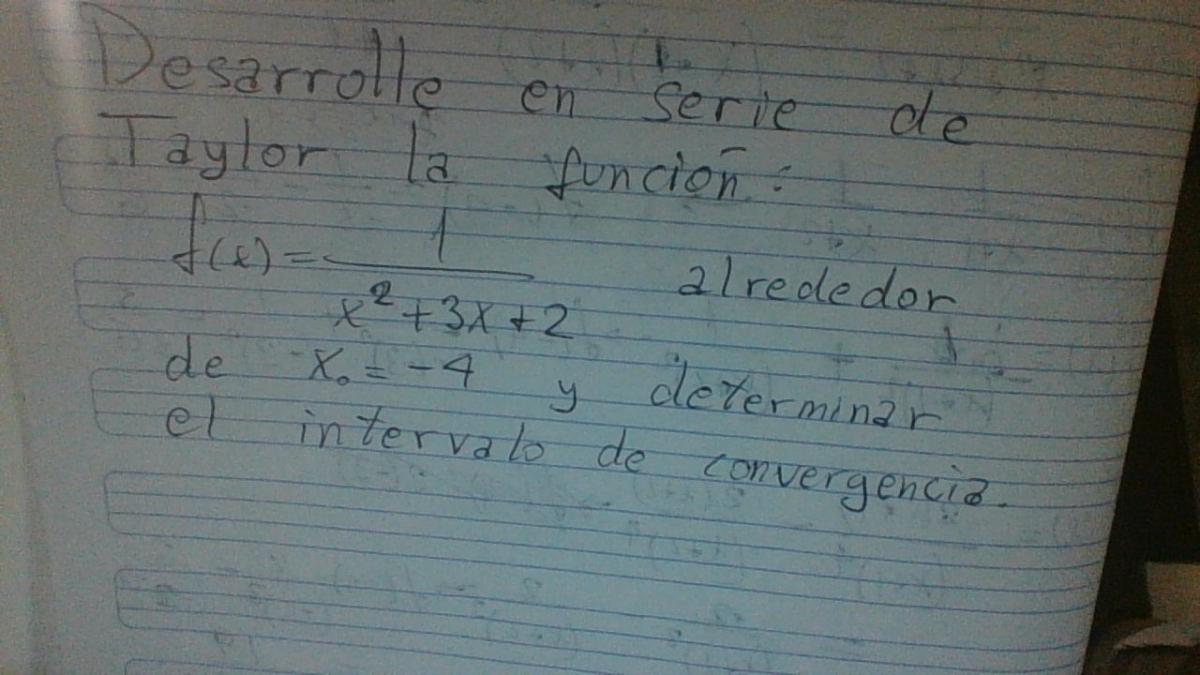 Desarrolle en serie de
Taylor la función:
f(x) = 1 / x² + 3x + 2 alrededor
de x₀ = -4 y determinar
el intervalo de convergencia.